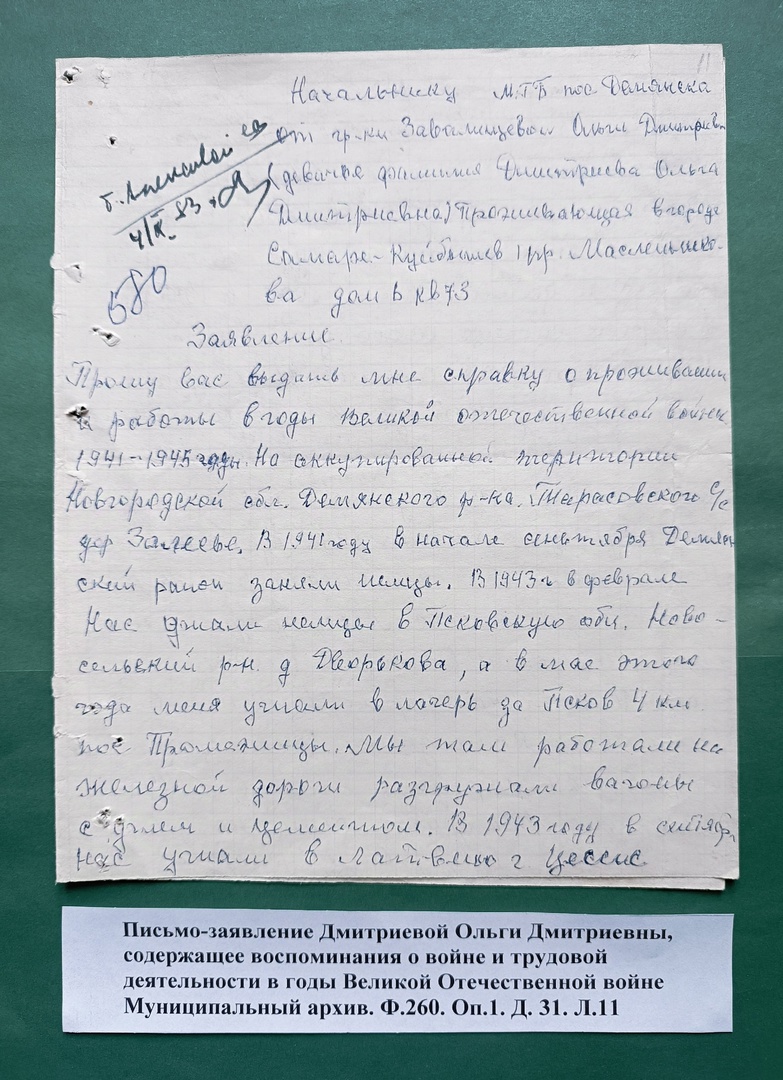 11
Начальнику МГБ пос Демянска
от гр-ки Завалищевой Ольги Дмитриев
(девичья фамилия Дмитриева Ольга
Дмитриевна) Проживающая в городе
Самаре-Куйбышев пр. Маслеников-
ва дом кв 73
т.
4/IX. 93
580
Заявление.
Прошу вас выдать мне справку о проживании
и работы в годы Великой отечественной войны
1941-1945 годы. На аккупированной територии
Новгородской обл. Демянского р-на. Тарасовского с/с
дер Залесье. В 1941 году в начале сентября Демян
ский район заняли немцы. В 1943 г в феврале
Нас угнали немцы в Псковскую обл. Ново-
сельский р-н. д Дворькова, а в мае этого
года меня угнали в лагерь за Псков 4 км
пос Промежицы. Мы там работали на
железной дороги разгружали вагоны
с углем и цементом. В 1943 году в сентябр
нас угнали в Латвию г Цессис
Письмо-заявление Дмитриевой Ольги Дмитриевны,
содержащее воспоминания о войне и трудовой
деятельности в годы Великой Отечественной войне
Муниципальный архив. Ф.260. Оп.1. Д. 31. Л.11